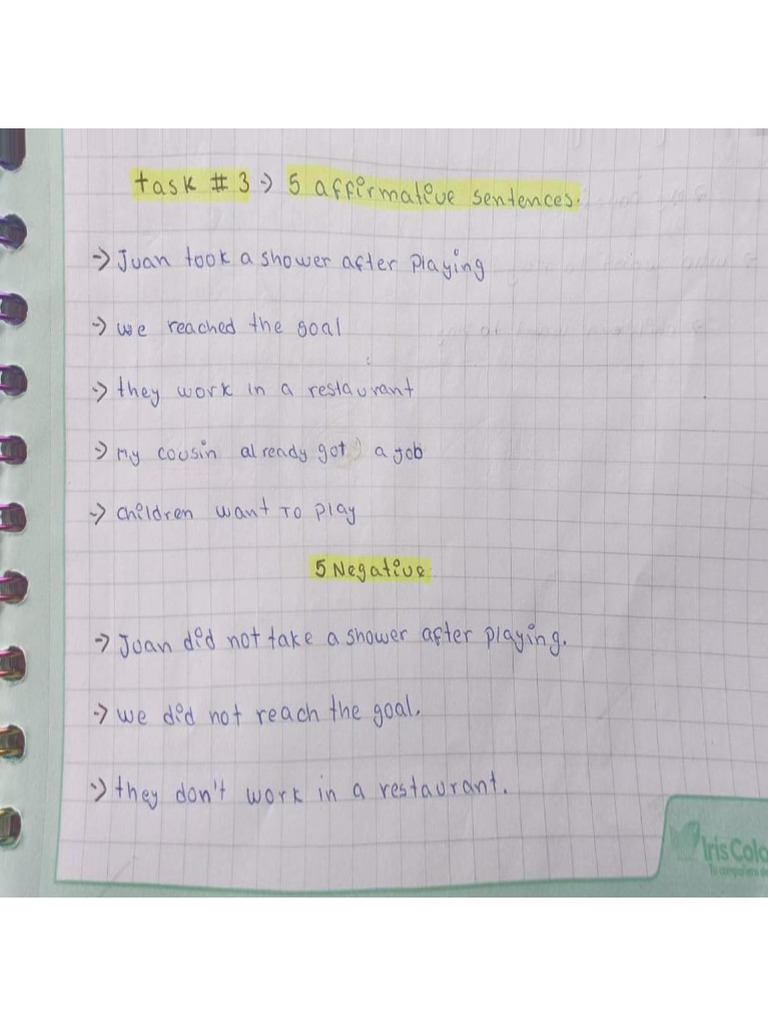 task # 3 → 5 affirmative sentences.
→ Juan took a shower after playing
→ we reached the goal
→ they work in a restaurant
→ My cousin already got a job
→ children want to play
5 Negative
→ Juan did not take a shower after playing.
→ we did not reach the goal.
→ they don't work in a restaurant.
Iris Colo